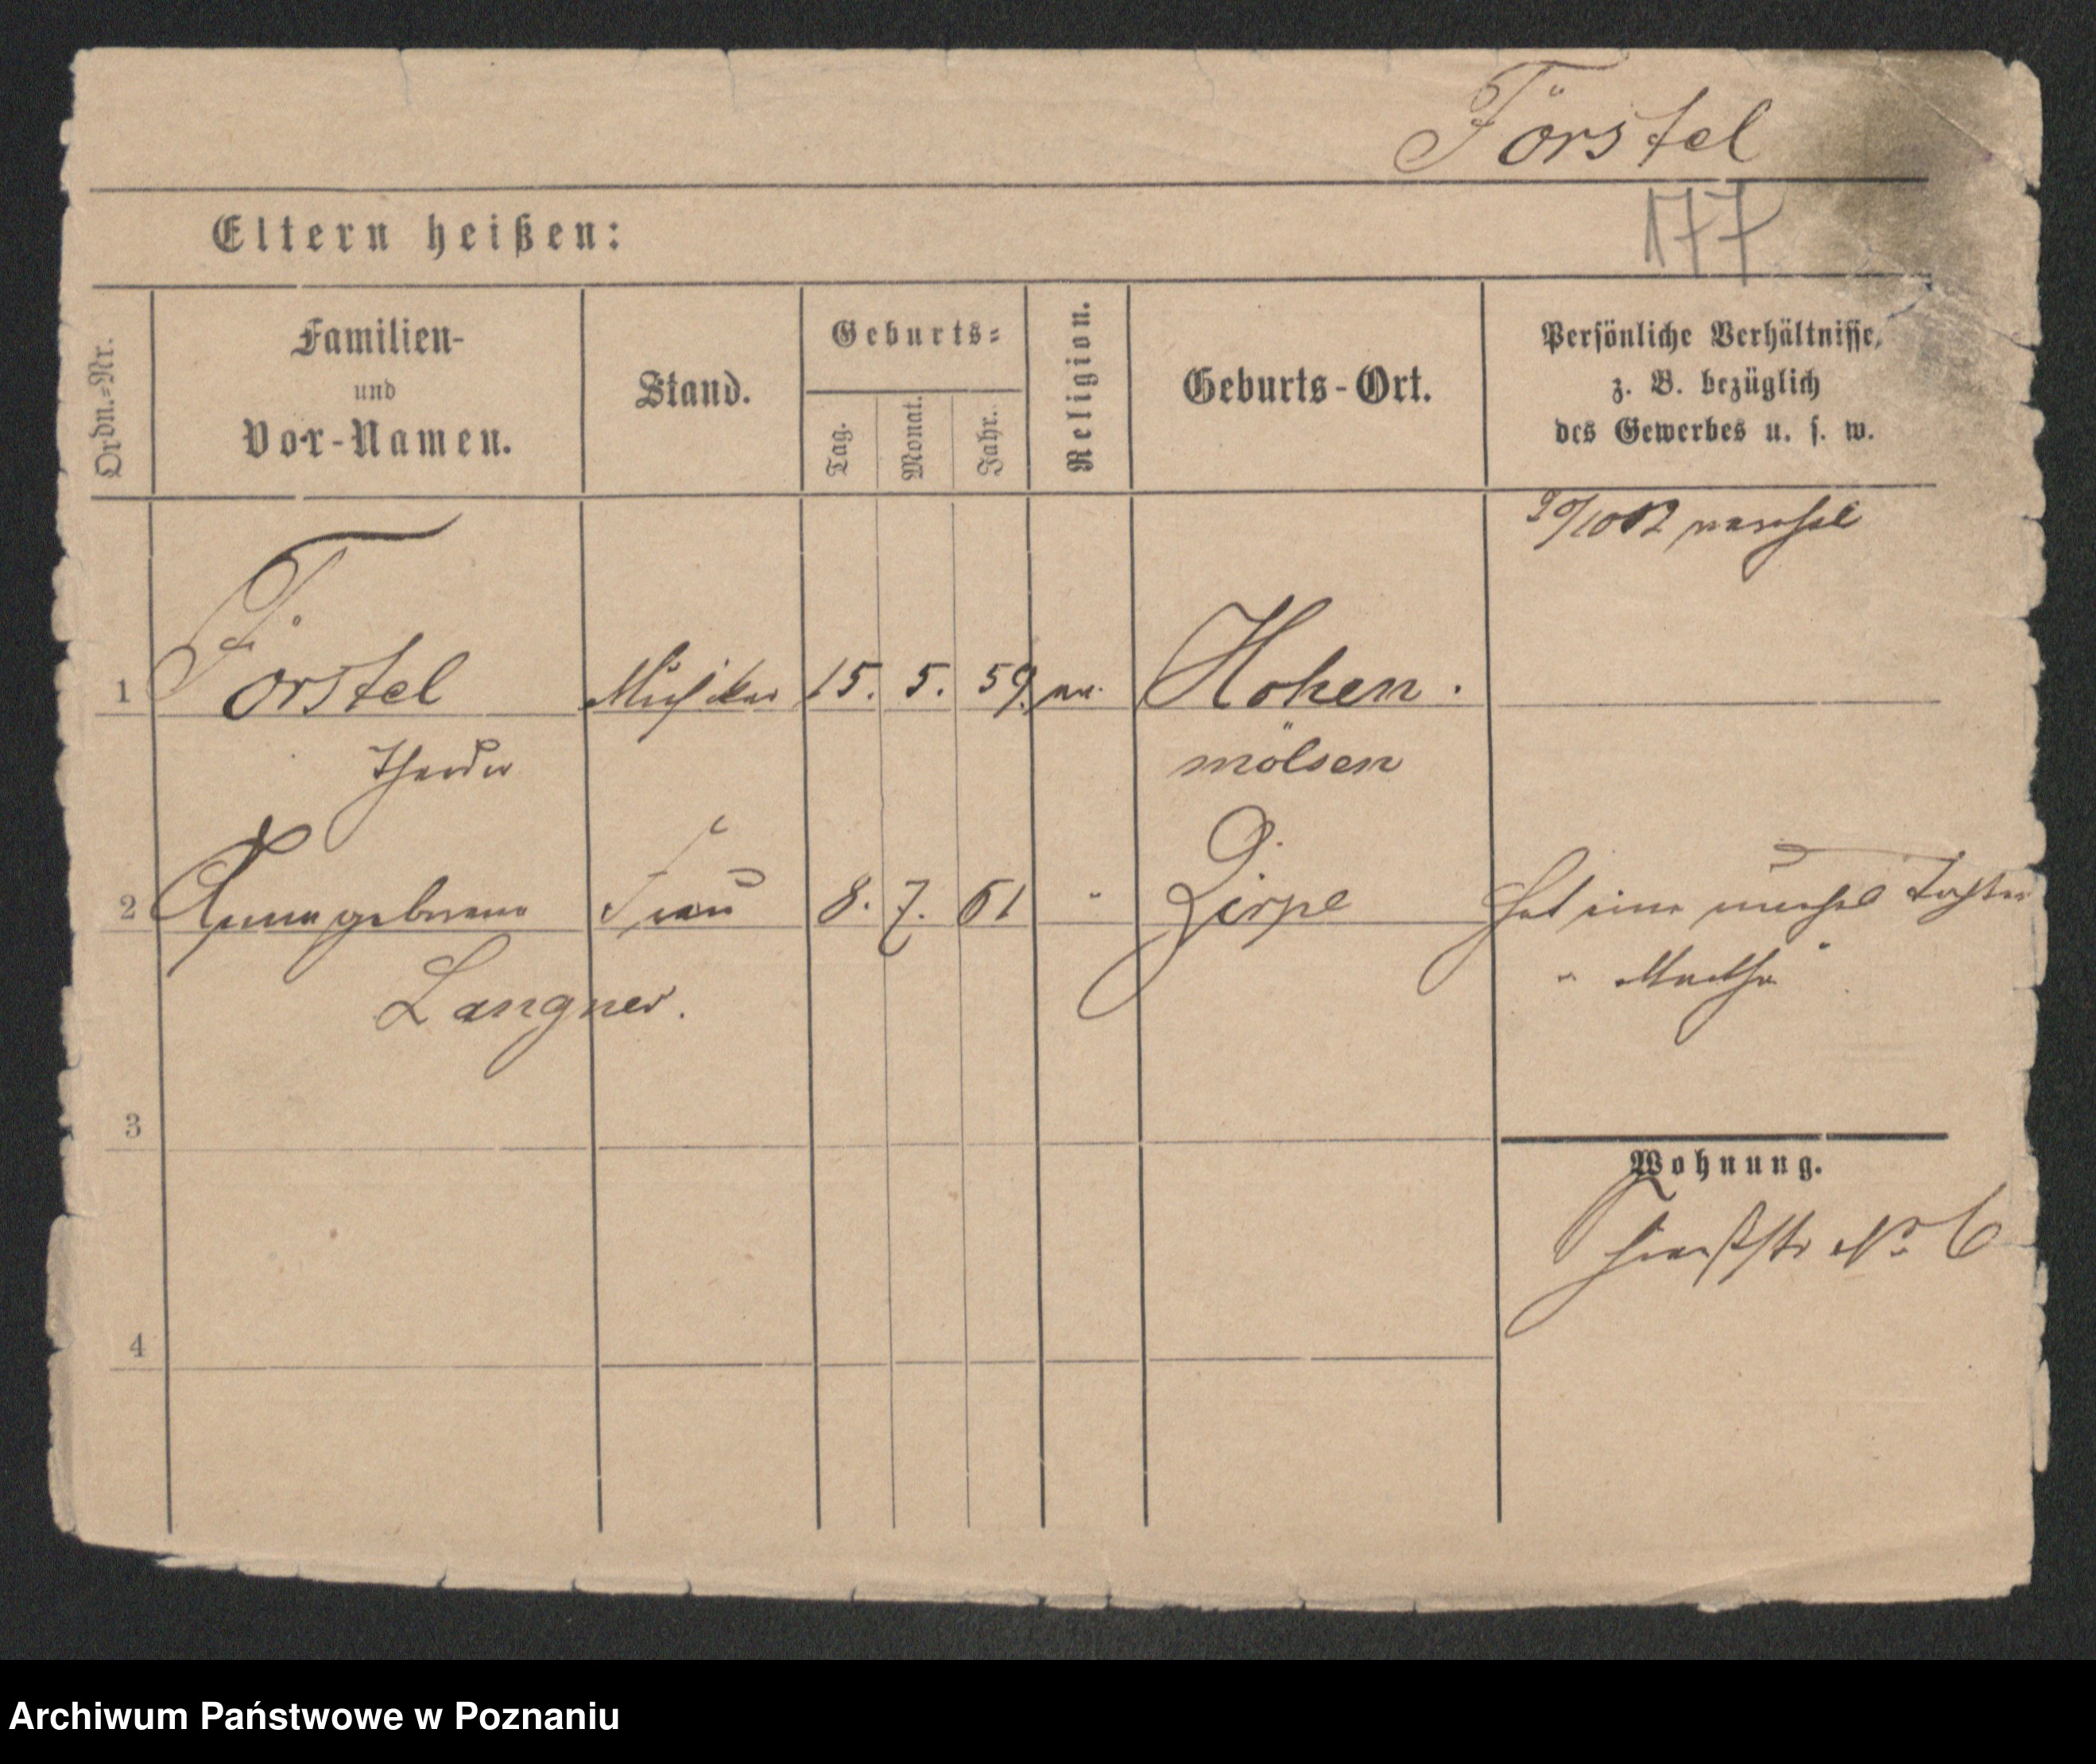 Förstel
177
Eltern heißen:
Ordn.-Nr.
Familien-
und
Vor-Namen.
Stand.
Geburts-
Tag.
Monat.
Jahr.
Religion.
Geburts-Ort.
Persönliche Verhältnisse,
z. B. bezüglich
des Gewerbes u. s. w.
verehel
1 Förstel Musiker 15. 5. 59. Hohen
Theodor mölsen
2 Anna geborene Frau 8. 7. 61 " Zirpe Hat eine unehel Tochter
Langner. " Martha "
3
Wohnung.
No 6
4
Archiwum Państwowe w Poznaniu